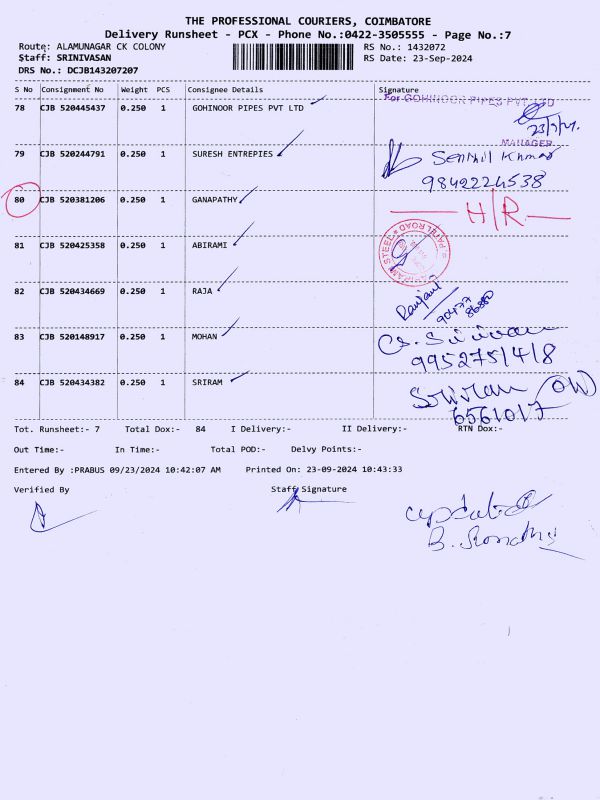 THE PROFESSIONAL COURIERS, COIMBATORE
Delivery Runsheet - PCX - Phone No.:0422-3505555 - Page No.:7
Route: ALAMUNAGAR CK COLONY RS No.: 1432072
Staff: SRINIVASAN RS Date: 23-Sep-2024
DRS No.: DCJB143207207
S No Consignment No Weight PCS Consignee Details Signature
For GOHINOOR PIPES PVT. LTD
78 CJB 520445437 0.250 1 GOHINOOR PIPES PVT LTD
MANAGER
79 CJB 520244791 0.250 1 SURESH ENTREPIES Senthil Kumar
9842224538
80 CJB 520381206 0.250 1 GANAPATHY H/R.
81 CJB 520425358 0.250 1 ABIRAMI
82 CJB 520434669 0.250 1 RAJA Ranjani
83 CJB 520148917 0.250 1 MOHAN
9952751418
84 CJB 520434382 0.250 1 SRIRAM Sriram
6561017
Tot. Runsheet:- 7 Total Dox:- 84 I Delivery:- II Delivery:- RTN Dox:-
Out Time:- In Time:- Total POD:- Delvy Points:-
Entered By :PRABUS 09/23/2024 10:42:07 AM Printed On: 23-09-2024 10:43:33
Verified By Staff Signature
updated